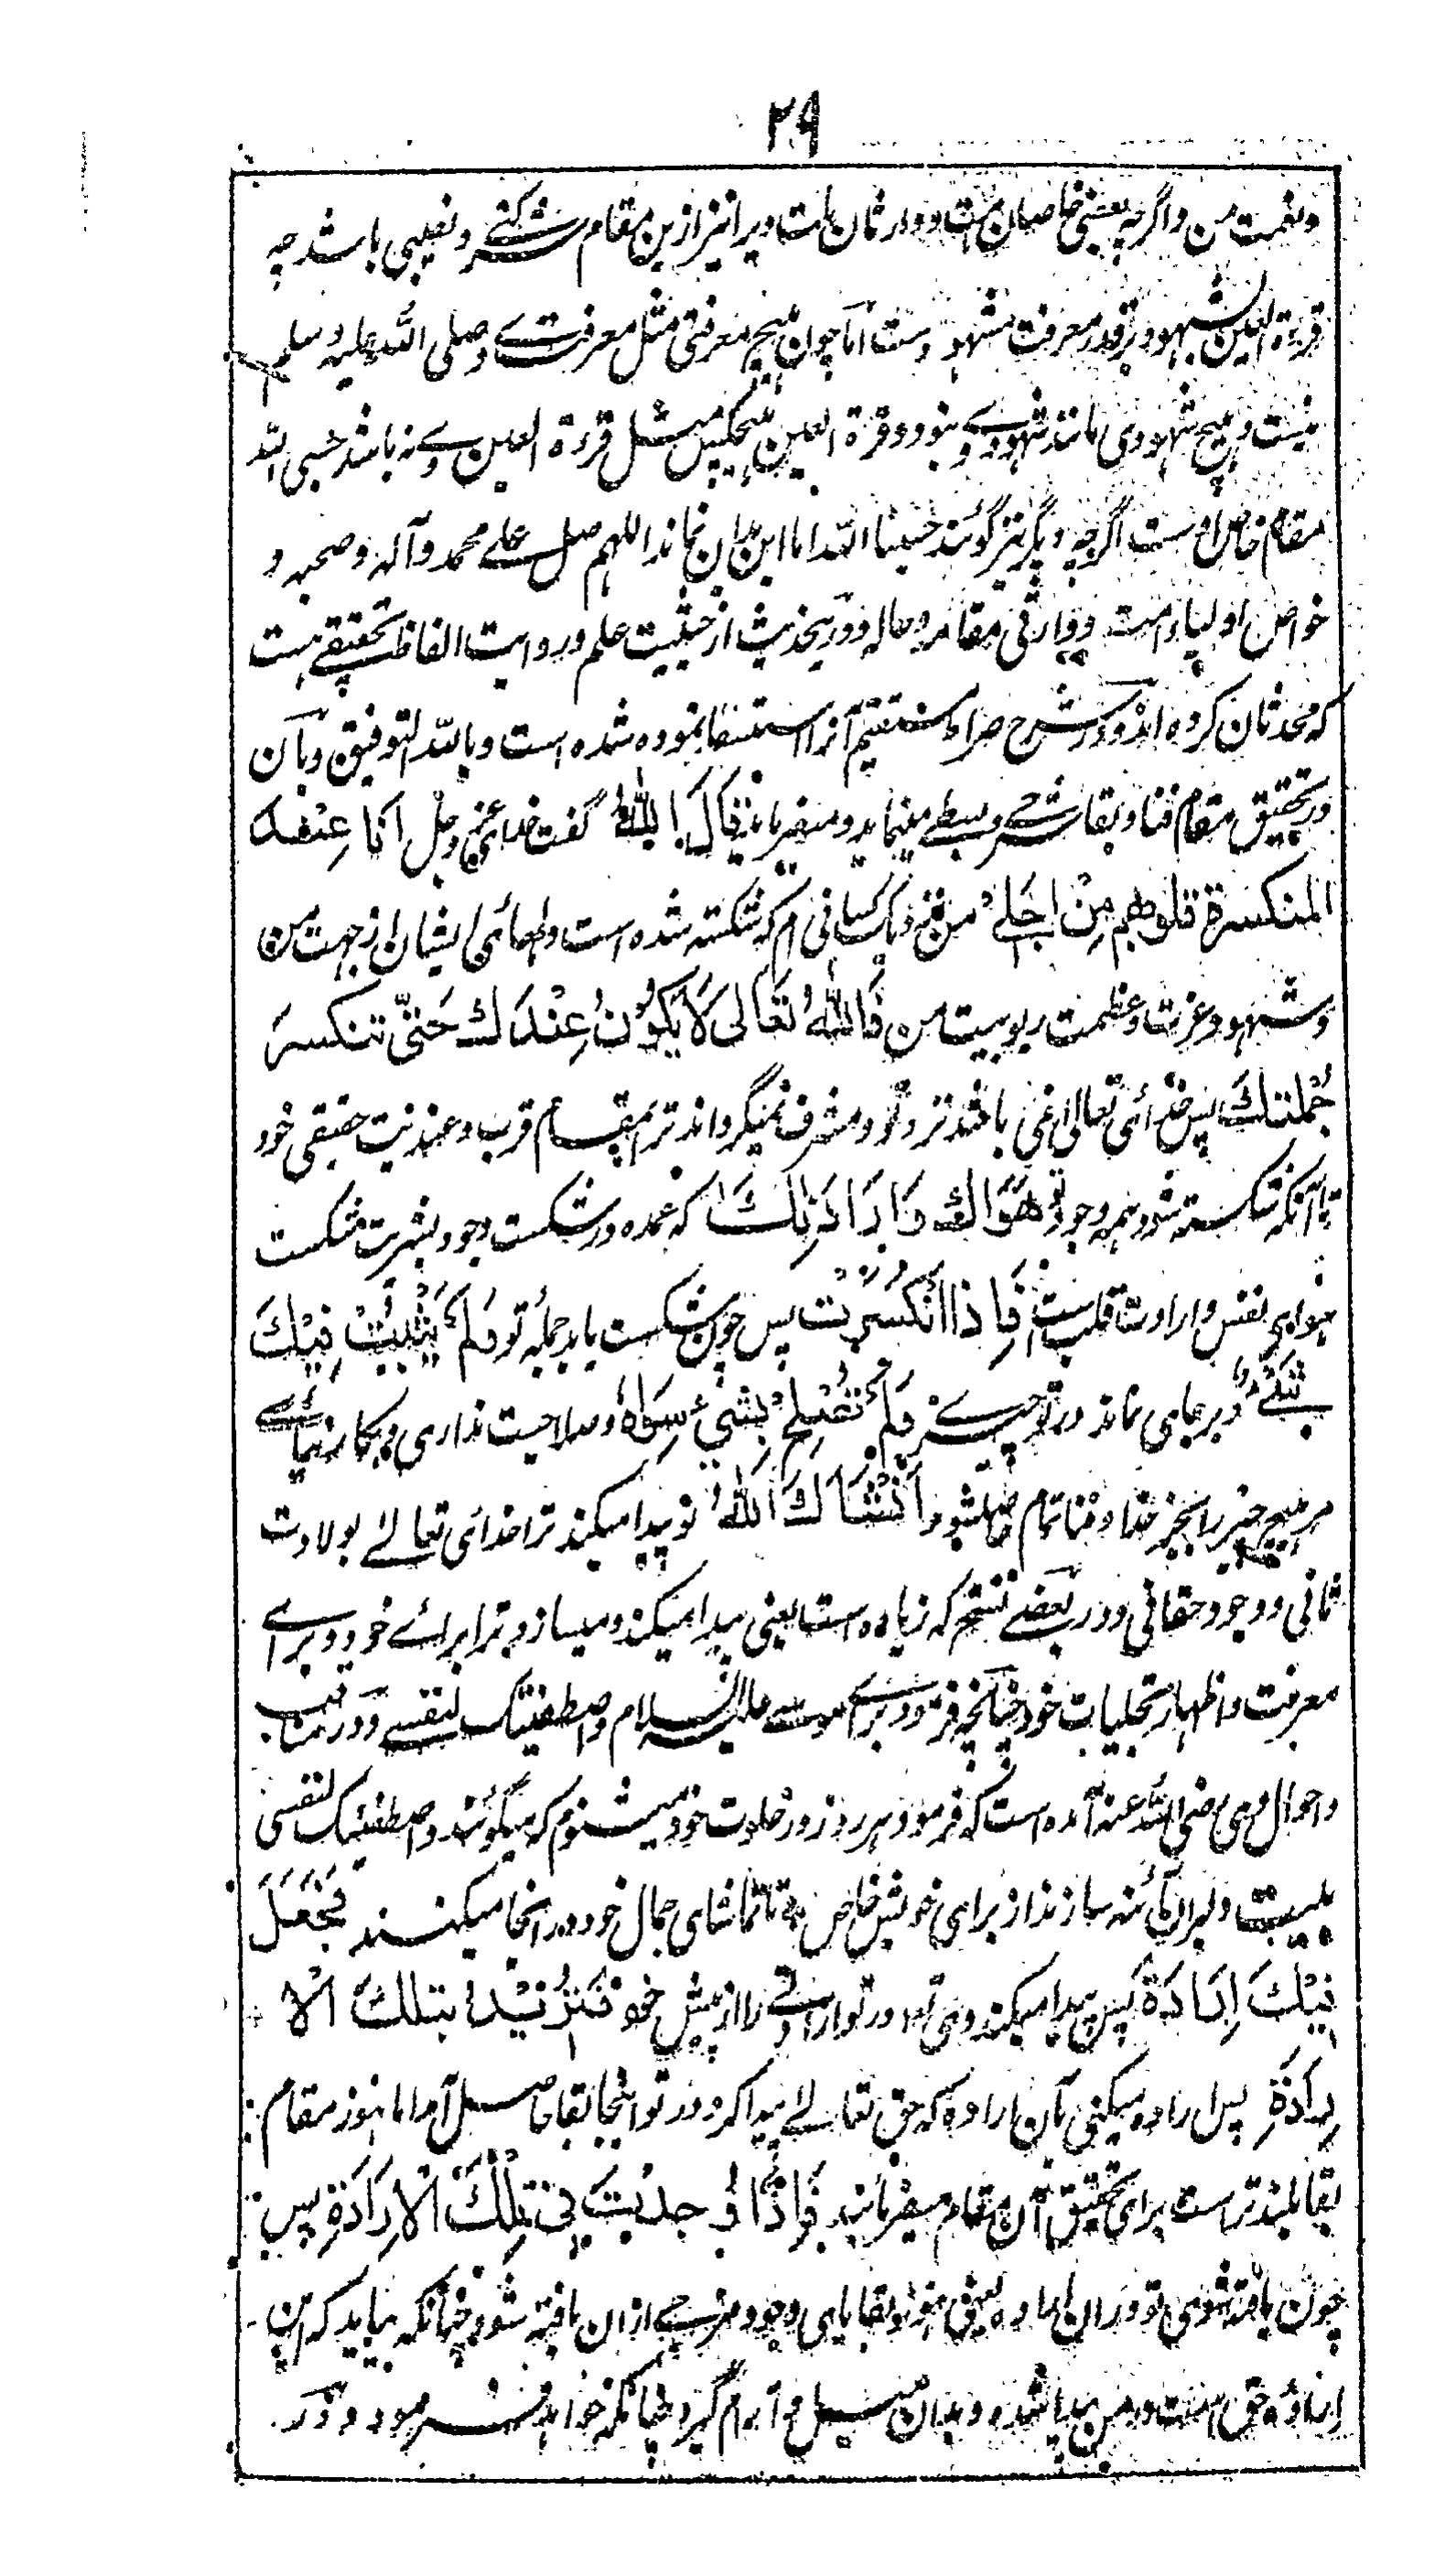 ۲۹
و نعمت من و اگرچه بعضی خاصان امت و وارثان ملت ویرا نیز ازین مقام شرکتے و نصیبی باشد چه
قرة العین شهود بر قدر معرفت مشهود ست اما چون هیچ معرفتی مثل معرفت وے صلی الله علیه وسلم
نیست و هیچ شهودی مانند شهود وے نبود و قرة العین هیچکس مثل قرة العین وے نه باشد حسبی الله
مقام خاص اوست اگرچه دیگر نیز گویند حسبنا الله اما این بدان نماند اللهم صل علے محمد و آله و صحبه و
خواص اولیاء امته و وارثی مقامه و حاله و درین حدیث از حیثیت علم و روایت الفاظ تحقیقے هست
که محدثان کرده اند و در شرح صراط مستقیم آنرا استقصا نموده شده است و بالله التوفیق و بآن
در تحقیق مقام فنا و بقا شرح و بسطے مینماید و میفرماید قَالَ اللّٰهُ گفت خدای عز و جل انا عِنْدَ
المنکسرة قلوبهم مِنْ اجَلے من نزدیک کسانی ام که شکسته شده است دلهائی ایشان از جهت من
و شهود عزت و عظمت ربوبیت من فَاللّٰهُ تَعَالی لَا یَکُوْنُ عِنْدَكَ حَتّٰی تنکسرَ
جُمْلتكَ پس خدائی تعالی نمی باشد نزد تو و مشرف نمیگرداند ترا بمقام قرب و عندیت حقیقی خود
تا آنکه شکسته شود همه وجود تو هَوَاكَ وَ اِرَادَتكَ که عمده در شکست وجود بشریت شکست
هوای نفس و ارادت قلب ست فَاِذَا انْکَسَرْتَ پس چون شکست یابد جمله تو وَلَمْ یَثْبُتْ فِیْكَ
شَیْ و برجای نماند در تو چیزے وَلَمْ تَصْلِحْ بِشَیْءٍ سِوَاهُ و صلاحیت نداری و بکار نیائی
مر هیچ چیز را بجز خدا و فنا تمام حاصل شود اَنْشَاكَ اللّٰهُ نو پیدا میکند ترا خدای تعالے بولادت
ثانی و وجود حقانی و در بعضے نسخ که زیاده است یعنی پیدا میکند و میسازد ترا برائے خود و براے
معرفت و اظهار تجلیات خود چنانچه فرمود براے موسے علیه السلام و اصطفیتک لنفسے و در مناقب
و احوال وی رضی الله عنه آمده است که فرمود هر روز در خلوت خود میشنوم که میگویند و اصطفیتک لنفسی
بیت دلبران آئنه سازند از برای خویش خاص ✤ تا تماشای جمال خود در انجا میکنند فَجَعَلَ
فِیْكَ اِرَادَةً پس پیدا میکند وی تعالی در تو ارادتے را از پیش خود فَتُرِیْدُ بتلكَ الْاِ
رَادَةِ پس اراده میکنی بآن اراده که حق تعالے پیدا کرد در تو اینجا بقا حاصل آمد اما هنوز مقام
بقا بلندتر است برای تحقیق آن مقام میفرمایند فَاِذَا وُجِدْتَ فِی تِلْكَ الْاِرَادَةِ پس
چون یافته شوی تو در ان اراده یعنی هنوز بقایای وجود مزجے از ان یافته شود چنانکه بیاید که این
ارادهٔ حق است و در من پیدا شده و بدان میل و آرام گیرد چنانکه خواهد فرمود و در